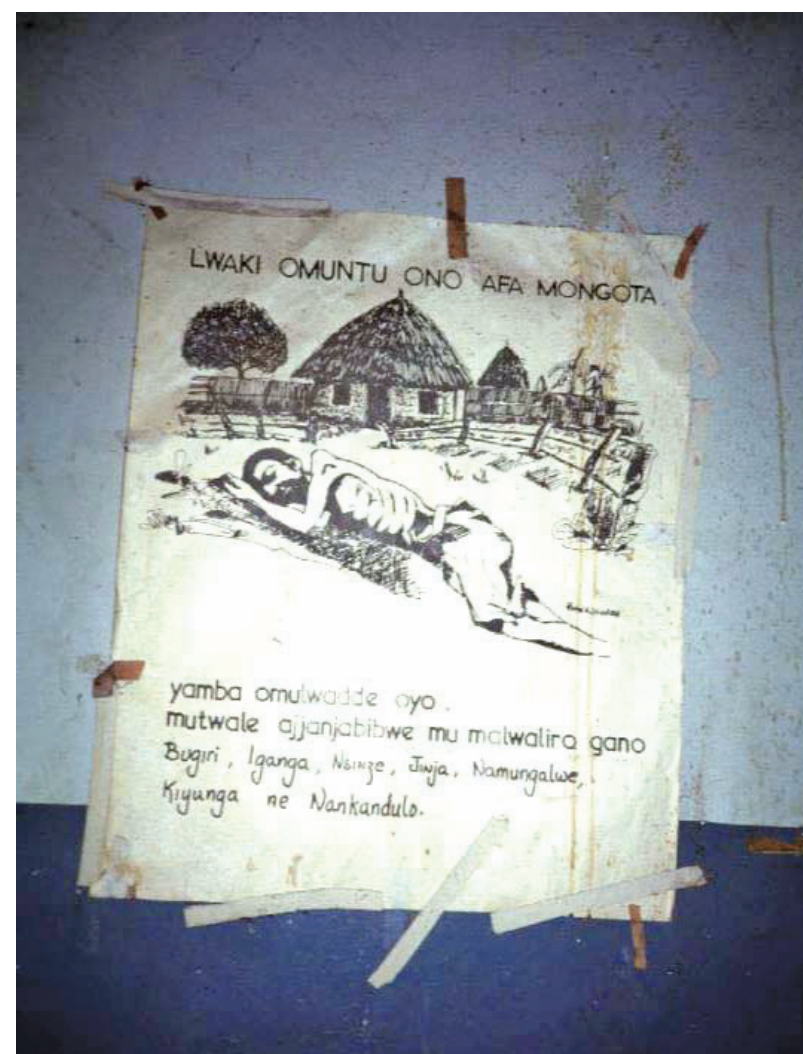 LWAKI OMUNTU ONO AFA MONGOTA
yamba omulwadde oyo.
mutwale ajjanjabibwe mu malwaliro gano
Bugiri, Iganga, Nsinze, Jinja, Namungalwe,
Kiyunga ne Nankandulo.